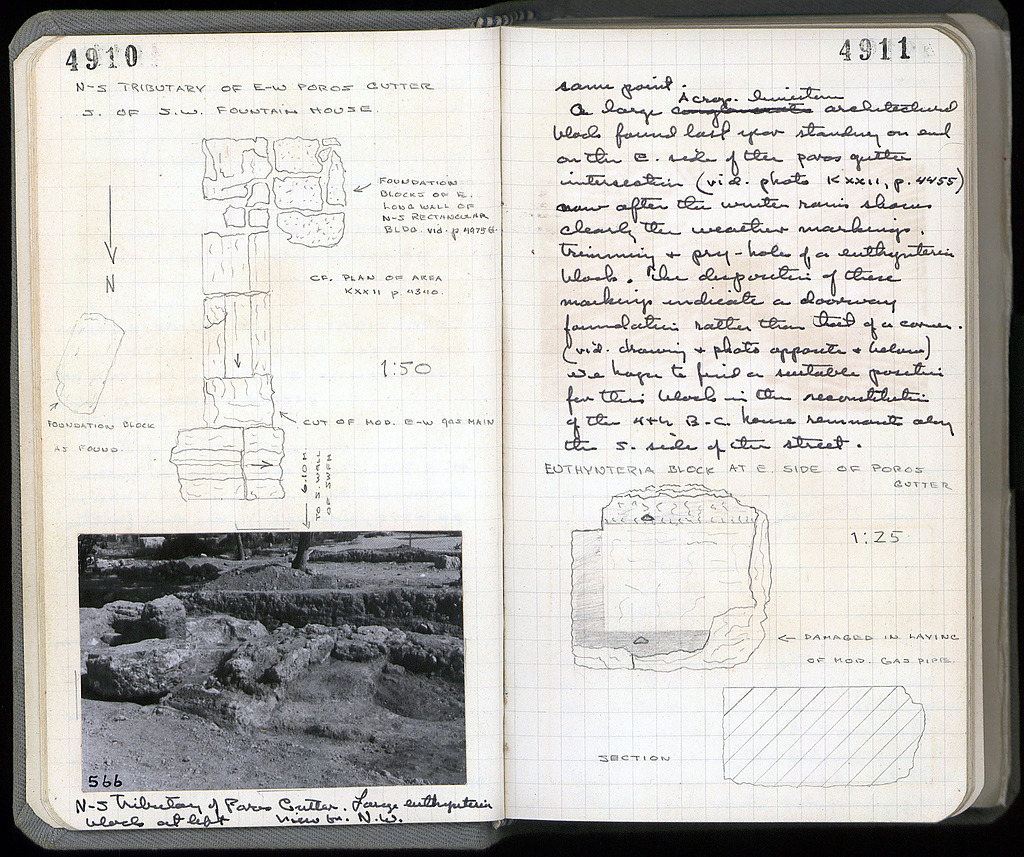 4910
N-S TRIBUTARY OF E-W POROS GUTTER
S. OF S.W. FOUNTAIN HOUSE.
FOUNDATION
BLOCKS OF E.
LONG WALL OF
N-S RECTANGULAR
BLDG. vid. p 4975 ff.
N
CF. PLAN OF AREA
KXXII p. 4340.
1:50
FOUNDATION BLOCK
AS FOUND.
CUT OF MOD. E-W GAS MAIN
← 6.10 M.
TO S WALL
OF SWFH
566
N-S Tributary of Poros Gutter. Large euthynteria
block at left View fr. N.W.
4911
same point.
Acrop. limestone
A large conglomerate architectural
block found last year standing on end
on the E. side of the poros gutter
intersection (vid. photo KXXII, p. 4455)
now after the winter rains shows
clearly the weather markings,
trimming + pry-holes of a euthynteria
block. The disposition of these
markings indicate a doorway
foundation rather than that of a corner.
(vid. drawing + photo opposite + below)
We hope to find a suitable position
for this block in the reconstitution
of the 4th B.C. house remnants along
the S. side of the street.
EUTHYNTERIA BLOCK AT E. SIDE OF POROS
GUTTER
1:25
← DAMAGED IN LAYING
OF MOD. GAS PIPE.
SECTION